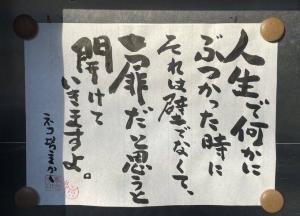 人生で何かに
ぶつかった時に
それは壁でなくて、
扉だと思うと
開けて
いきますよ。